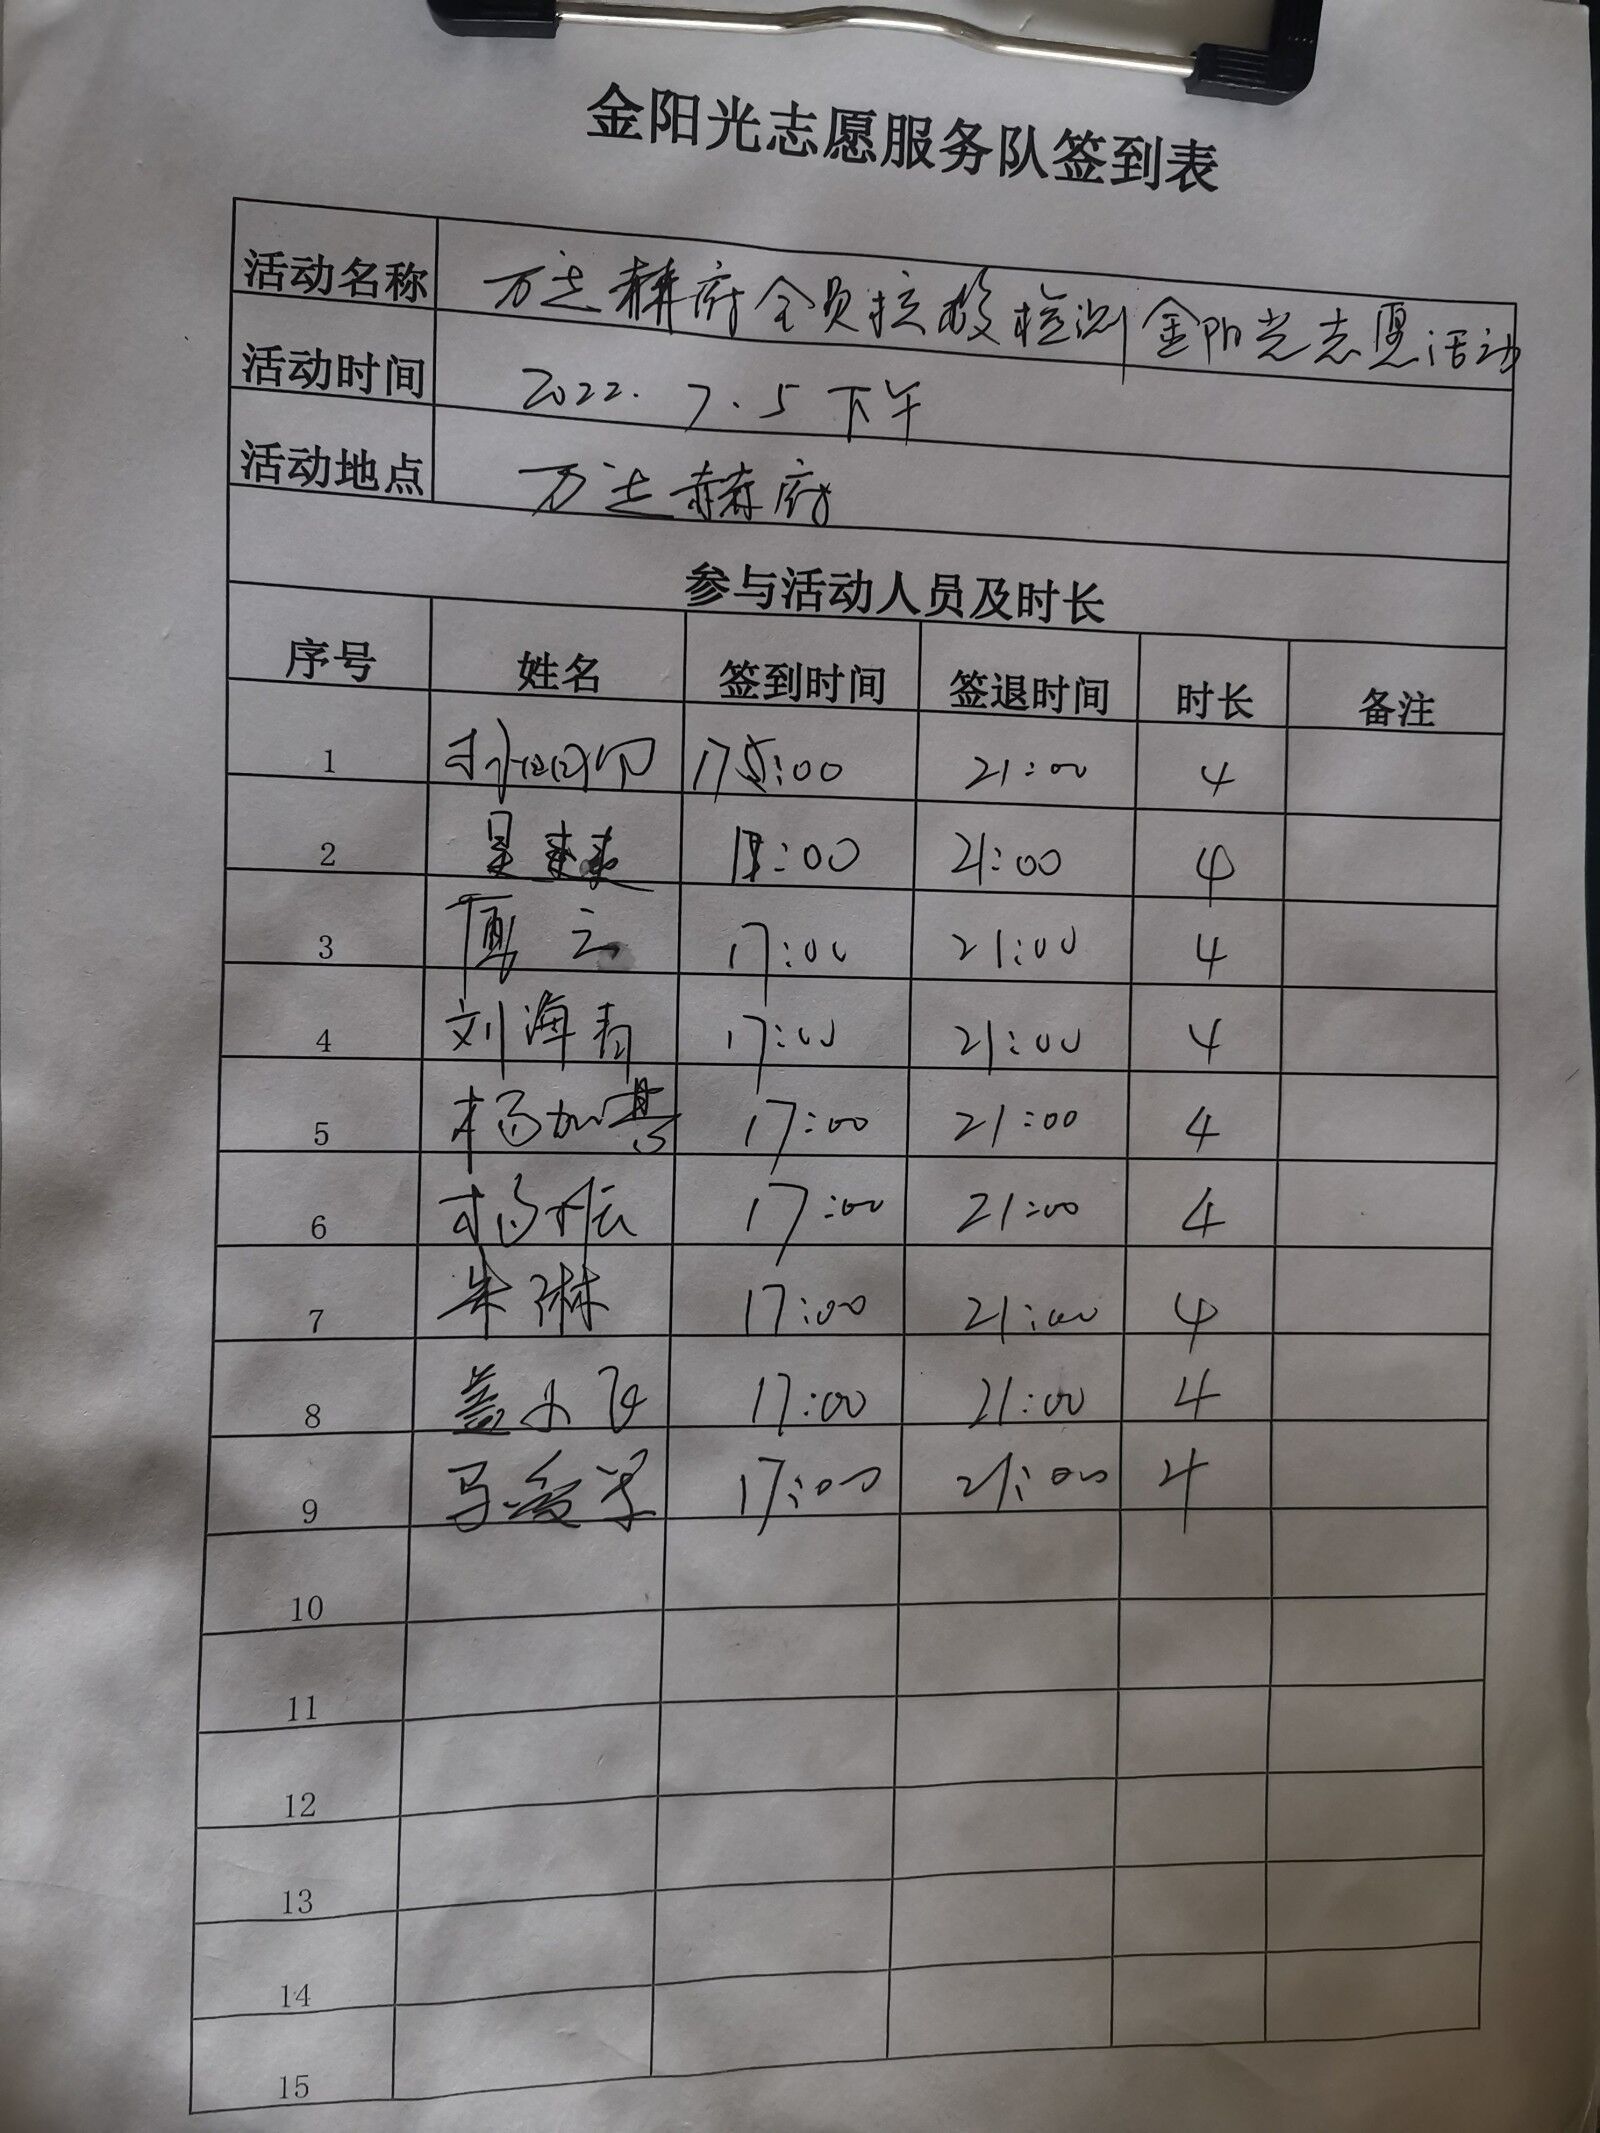 金阳光志愿服务队签到表
活动名称 万达赫府全员核酸检测金阳光志愿活动
活动时间 2022.7.5下午
活动地点 万达赫府
参与活动人员及时长
序号 姓名 签到时间 签退时间 时长 备注
1 :00 21:00 4
2 :00 21:00 4
3 17:00 21:00 4
4 刘海青 17:00 21:00 4
5 杨加 17:00 21:00 4
6 杨 17:00 21:00 4
7 朱琳 17:00 21:00 4
8 盖小飞 17:00 21:00 4
9 马 17:00 21:00 4
10
11
12
13
14
15